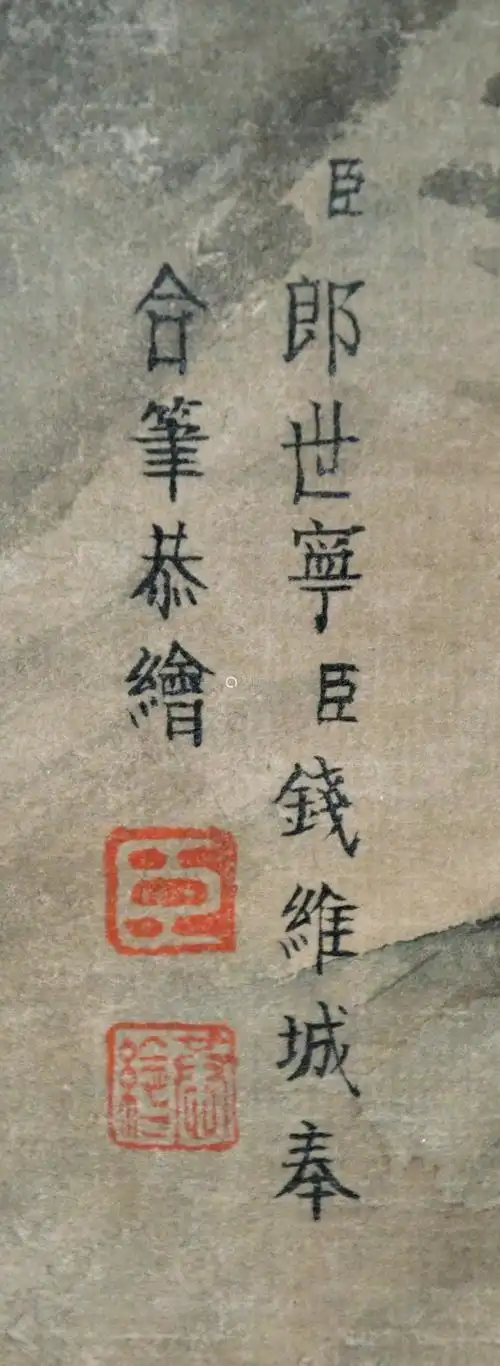 臣郎世寧臣錢維城奉
合筆恭繪
臣
恭繪